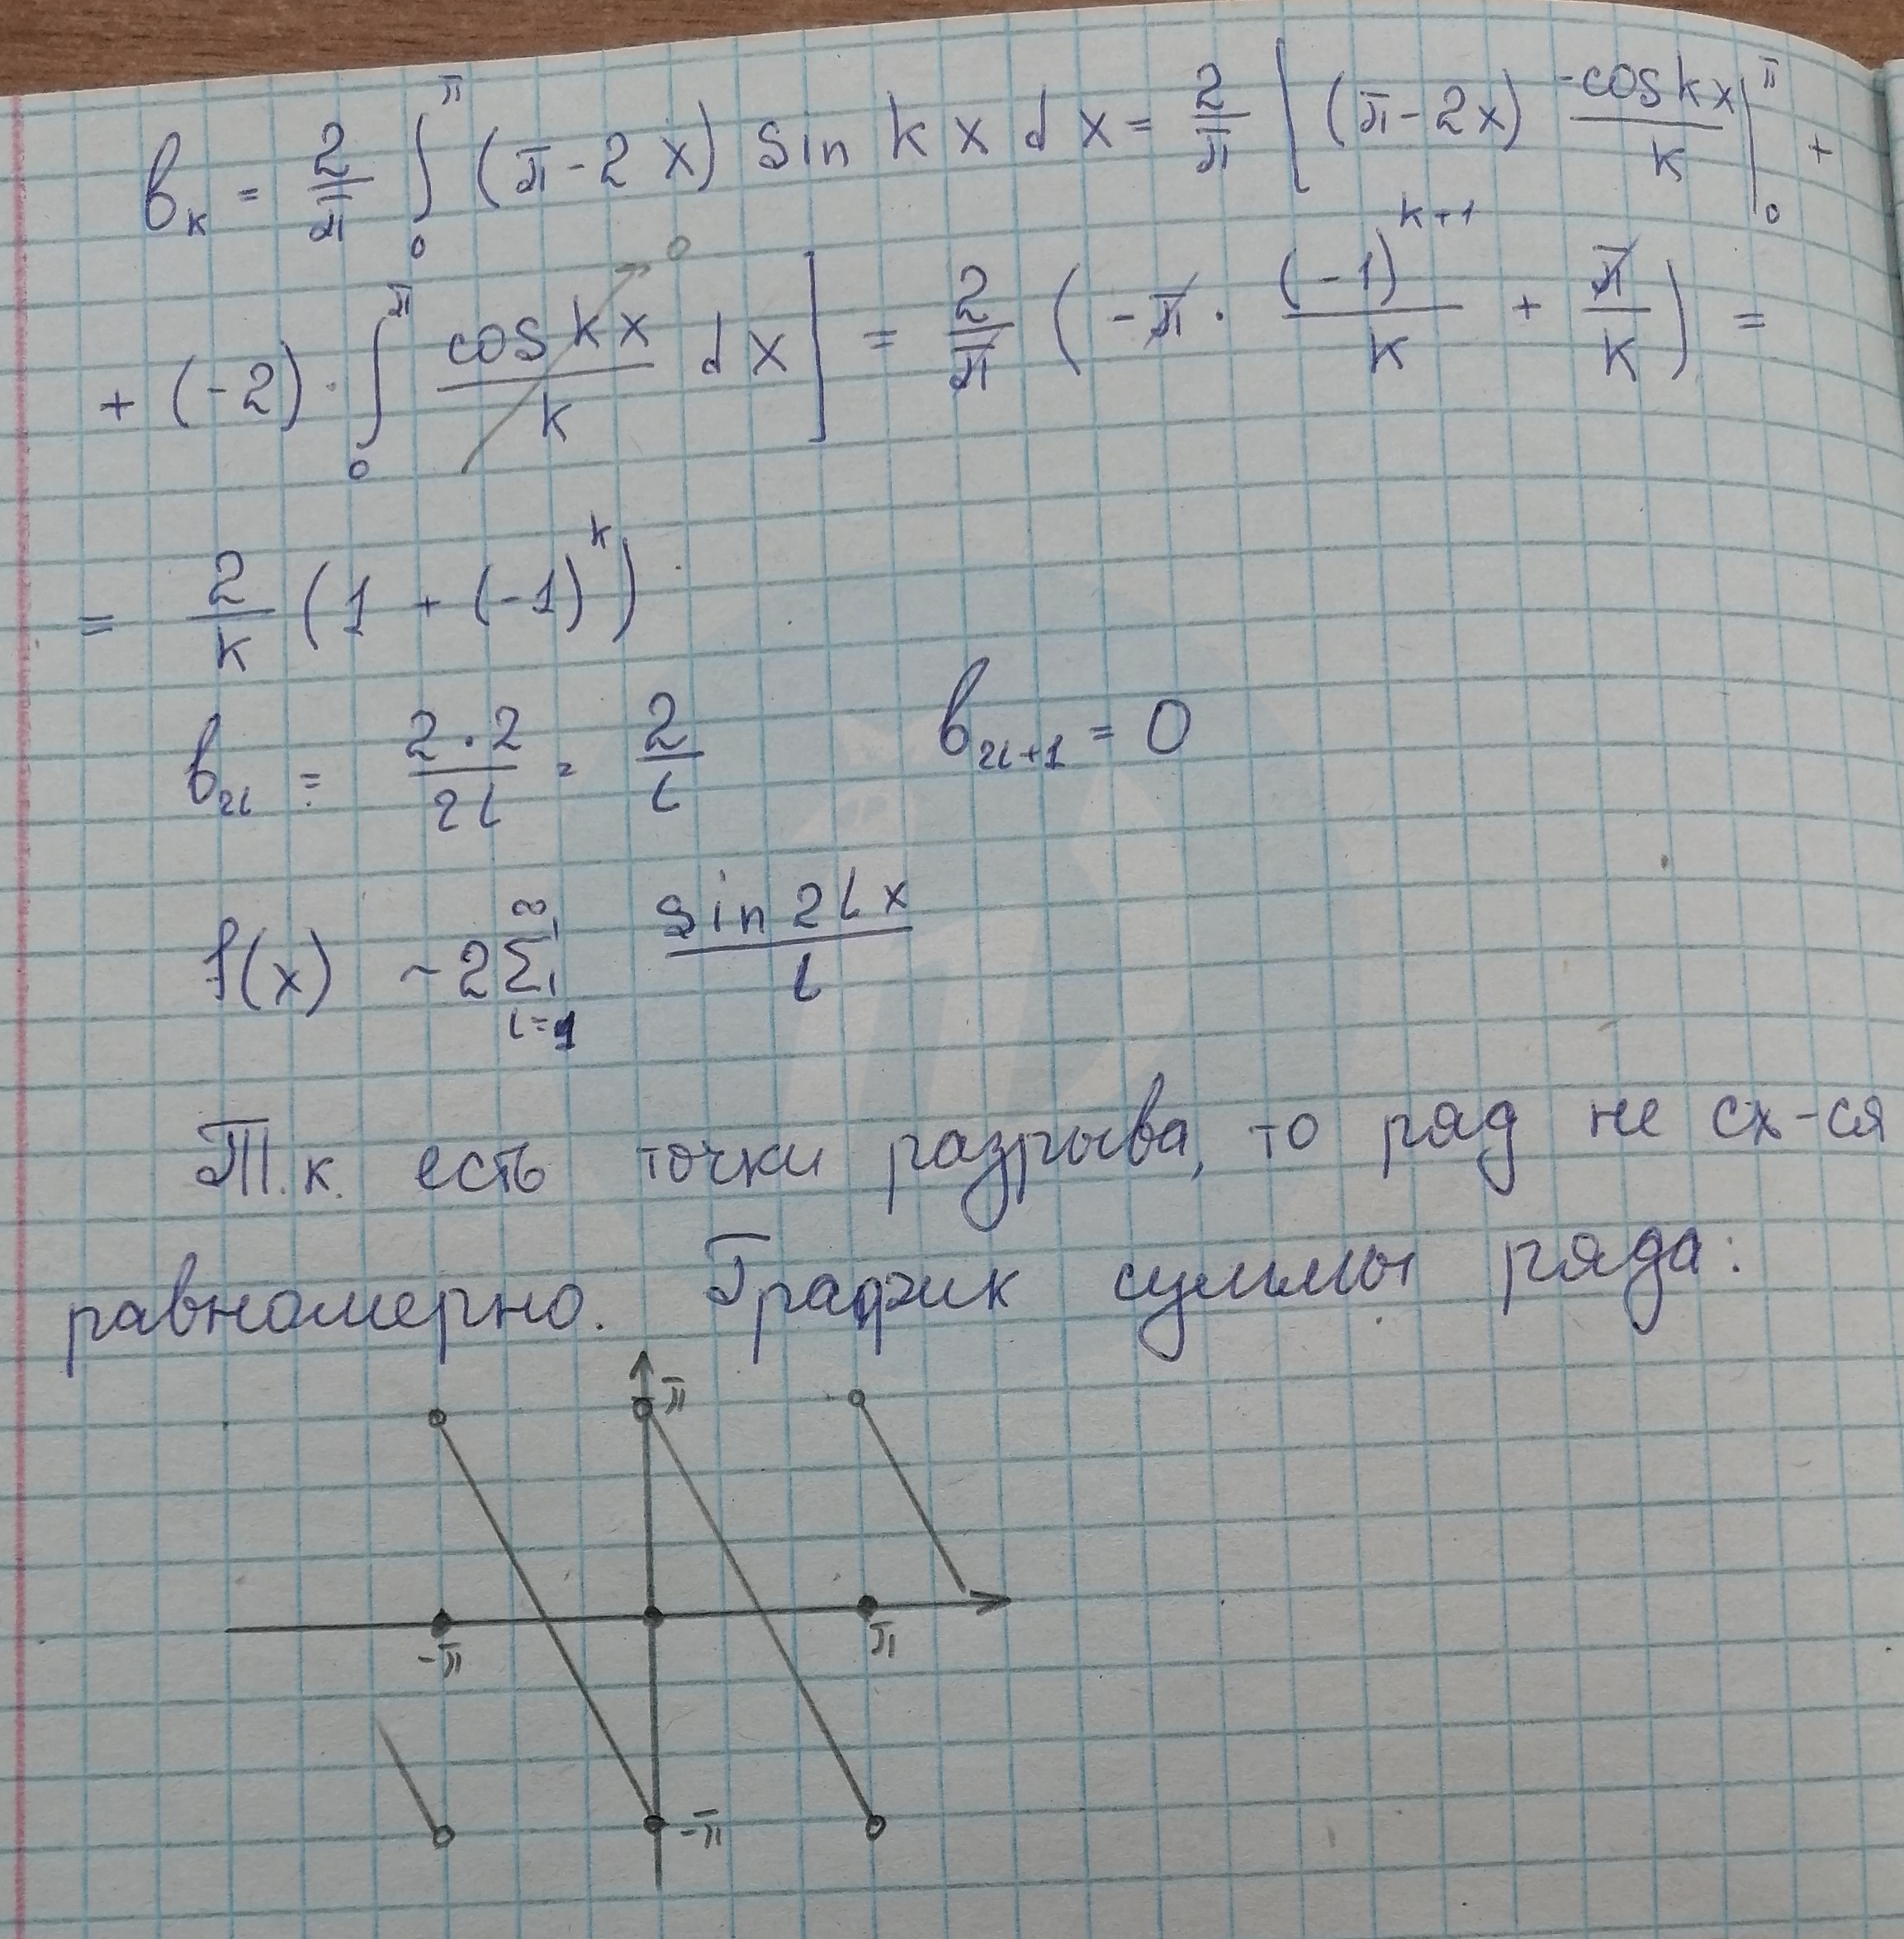 bₖ = 2/π ∫₀^π (π - 2x) sin kx dx = 2/π [ (π - 2x) (-cos kx)/k |₀^π +
+ (-2) · ∫₀^π (cos kx)/k dx ] → 0 = 2/π ( -π · (-1)^(k+1)/k + π/k ) =
= 2/k (1 + (-1)^k)
b₂ₗ = 2·2/2l = 2/l b₂ₗ₊₁ = 0
f(x) ~ 2 ∑_{l=1}^∞ (sin 2lx)/l
Т.к. есть точки разрыва, то ряд не сх-ся
равномерно. График суммы ряда:
π
-π π
-π